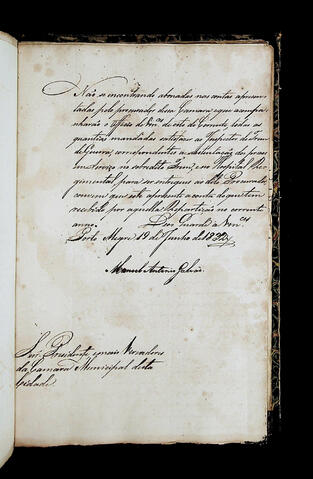 Não se encontrando abonadas nas contas apresen-
tadas pelo procurador dessa Camara, e que acompa-
nharão o Officio de V.ces de oito do Corrente, todas as
quantias mandadas satisfazer ao Trem
de Guerra, correspondente a sustentação dos presos
em serviço no sobredito Trem, e no Hospital Re-
gimental, para ser entregues ao dito Procurador
convem que seja apresentada a conta do que tem
recebido por aquella Repartição no corrente
anno. Deos Guarde a V.ces
Porto Alegre 19 de Junho de 1832
Manoel Antonio Galvão
Snr.es Presidente, e mais Vereadores
da Camara Municipal desta
Cidade